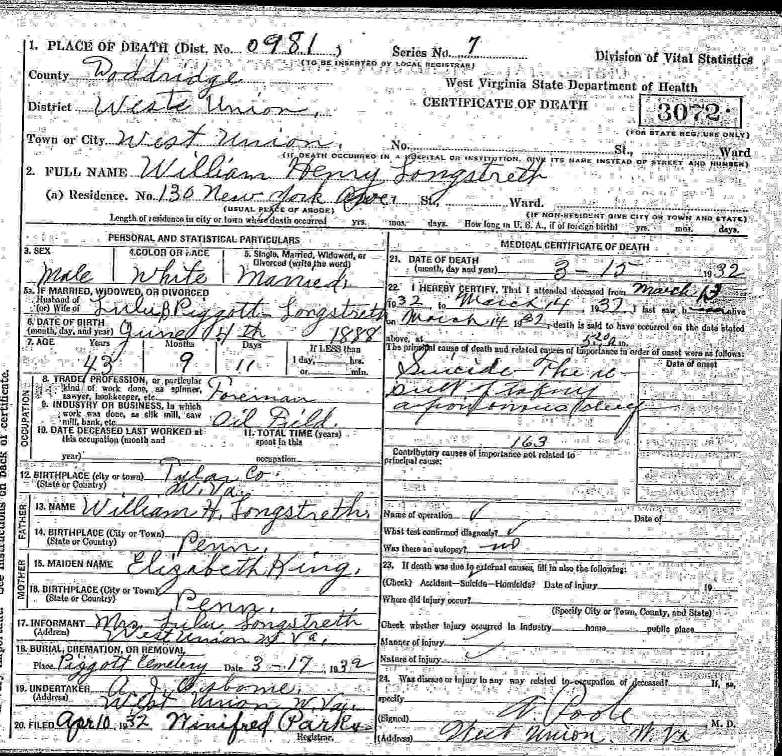 1. PLACE OF DEATH (Dist. No. 0981) Series No. 7 Division of Vital Statistics
(TO BE INSERTED BY LOCAL REGISTRAR)
County Doddridge West Virginia State Department of Health
District West Union, CERTIFICATE OF DEATH 3072
(FOR STATE REG. USE ONLY)
Town or City West Union. No. St., Ward
(IF DEATH OCCURRED IN A HOSPITAL OR INSTITUTION, GIVE ITS NAME INSTEAD OF STREET AND NUMBER)
2. FULL NAME William Henry Longstreth
(a) Residence. No. 130 New York Ave St. Ward.
(USUAL PLACE OF ABODE) (IF NON-RESIDENT GIVE CITY OR TOWN AND STATE)
Length of residence in city or town where death occurred yrs. mos. days. How long in U. S. A., if of foreign birth? yrs. mos. days.
PERSONAL AND STATISTICAL PARTICULARS
3. SEX 4. COLOR OR RACE 5. Single, Married, Widowed, or
Divorced (write the word)
Male White Married,
5a. IF MARRIED, WIDOWED, OR DIVORCED
Husband of
(or) Wife of Lulu Piggott Longstreth
6. DATE OF BIRTH
(month, day, and year) June 4th 1888
7. AGE Years Months Days If LESS than
1 day, hrs.
or min.
43 9 11
OCCUPATION
8. TRADE, PROFESSION, or particular
kind of work done, as spinner,
sawyer, bookkeeper, etc. Foreman
9. INDUSTRY OR BUSINESS, in which
work was done, as silk mill, saw
mill, bank, etc. Oil Field.
10. DATE DECEASED LAST WORKED at 11. TOTAL TIME (years)
this occupation (month and spent in this
year) occupation
12. BIRTHPLACE (city or town) Tyler Co.
(State or Country) W. Va.
FATHER
13. NAME William H. Longstreth,
14. BIRTHPLACE (City or Town)
(State or Country) Penn.
MOTHER
15. MAIDEN NAME Elizabeth King,
16. BIRTHPLACE (City or Town)
(State or Country) Penn.
17. INFORMANT Mrs Lulu Longstreth
(Address) West Union W Va.
18. BURIAL, CREMATION, OR REMOVAL
Place Piggott Cemetery Date 3-17, 1932
19. UNDERTAKER A. J. Osborne,
(Address) West Union W. Va.
20. FILED Apr 10 1932 Winifred Parks
Registrar.
MEDICAL CERTIFICATE OF DEATH
21. DATE OF DEATH
(month, day and year) 3-15 1932
22. I HEREBY CERTIFY, That I attended deceased from March 13
1932 to March 14, 1932 I last saw h alive
on March 14 1932, death is said to have occurred on the date stated
above, at m.
The principal cause of death and related causes of importance in order of onset were as follows:
Date of onset
Suicide The re
sult of taking
a poisonous
163
Contributory causes of importance not related to
principal cause:
Name of operation ✓ Date of
What test confirmed diagnosis? ✓
Was there an autopsy? no
23. If death was due to external causes, fill in also the following:
(Check) Accident—Suicide—Homicide? Date of injury 19
Where did injury occur?
(Specify City or Town, County, and State)
Check whether injury occurred in industry home public place
Manner of injury
Nature of injury
24. Was disease or injury in any way related to occupation of deceased? If, so,
specify
(Signed) Poole M. D.
(Address) West Union, W. Va
See instructions on back of certificate.